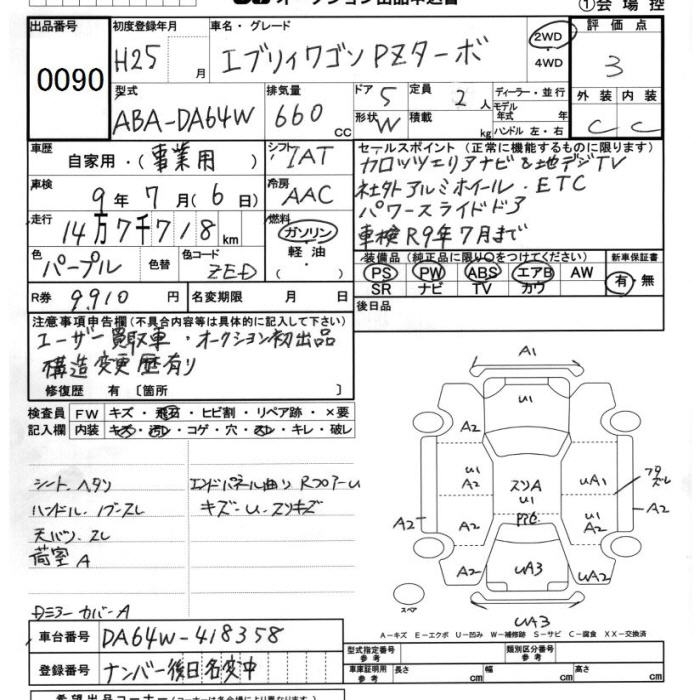 オークション出品申込書
①会場控
出品番号
0090
初度登録年月
H25 月
車名・グレード
エブリィワゴン PZターボ
2WD
・4WD
評価点
3
型式
ABA-DA64W
排気量
660 cc
ドア 5
定員 2 人
形状 W
積載 kg
ディーラー・並行
モデル
年式 年
ハンドル 左・右
外装 内装
C C
車歴
自家用・(事業用)
シフト
IAT
車検
9年 7月(6日)
冷房
AAC
走行
14万7千718 km
燃料
ガソリン
・
軽油
( )
色
パープル
色替
色コード
ZED
R券 9910 円
名変期限 月 日
セールスポイント(正常に機能するものに限ります)
カロッツェリアナビ&地デジTV
社外アルミホイール・ETC
パワースライドドア
車検R9年7月まで
装備品(純正品に限り○をつけてください)
PS PW ABS エアB AW
SR ナビ TV カワ
新車保証書
有・無
後日品
注意事項申告欄(不具合内容等は具体的に記入して下さい)
ユーザー買取車・オークション初出品
構造変更歴有り
修復歴 有〔箇所 〕
検査員 FW キズ・飛石・ヒビ割・リペア跡・×要
記入欄 内装 キズ・汚レ・コゲ・穴・スレ・キレ・破レ
シート、ヘタリ
ハンドル、ノブ-スレ
天バリ、スレ
荷室 A
Dミラーカバー A
エンドパネル曲り RフロアーU
キズ-U-スリキズ
A1
U1
A2
A2
U1
A2
スリA
U1
UA1
フタズレ
A2
U1
A2
A2
A2
UA3
A2
スペア
UA3
A-キズ E-エクボ U-凹み W-補修跡 S-サビ C-腐食 XX-交換済
車台番号 DA64W-418358
登録番号 ナンバー後日名変中
型式指定番号
参考
類別区分番号
参考
車庫証明用
参考
長さ cm 幅 cm 高さ cm
希望出品コーナー(コーナーは各会場により異なります)